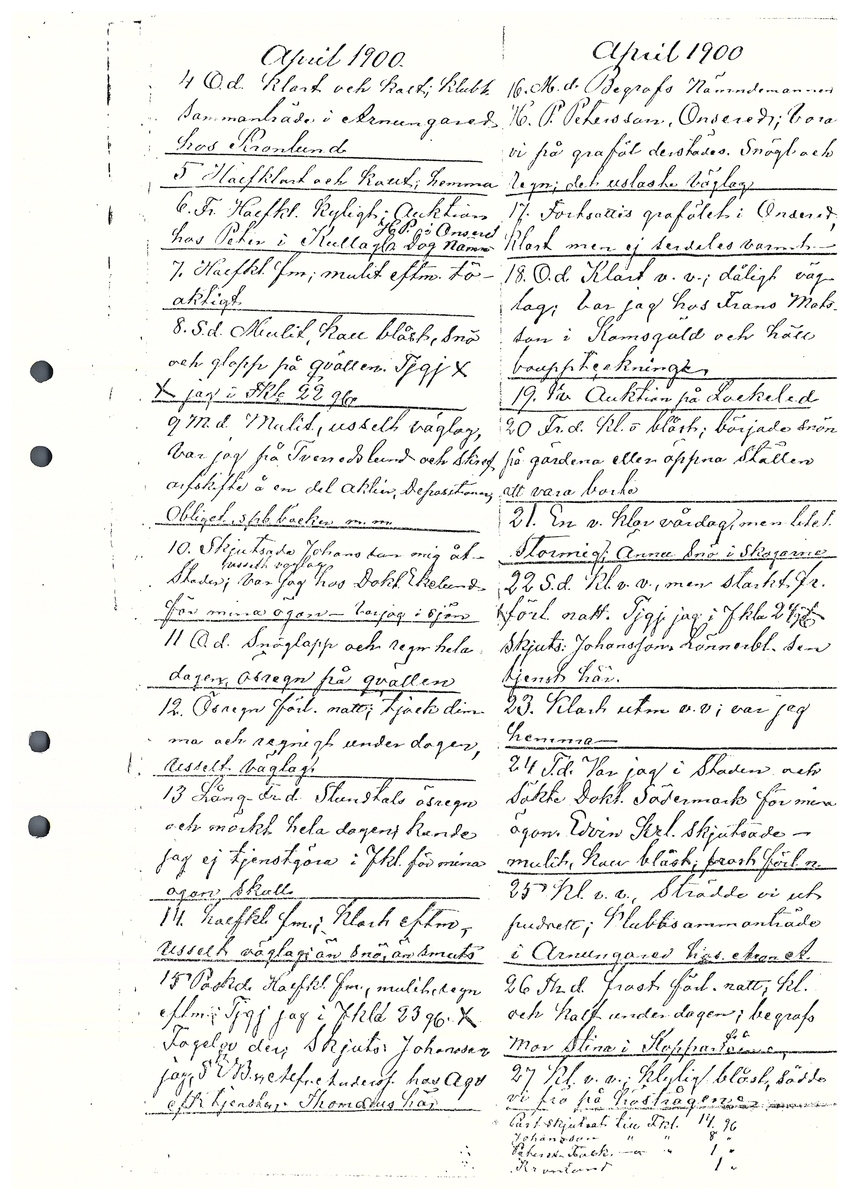 April 1900.
4 O.d. Klart och kallt; Klubb
sammanträde i Arnungared
hos Kronlund
5 Halfklart och kallt; hemma
6. Fr. Halfkl. kyligt; Auktion
H.P. i Onsered
hos Peter i Kullag Dog Nämn
7. Halfkl. fm; mulit eftm. tö-
aktigt
8. S.d. Mulit, kall blåst, snö
och glopp på qvällen. Tjgj X
X jag i Fkla 22 96.
9 M.d. Mulit, uselt väglag,
Var jag på Tveredslund och skref
arfskifte å en del aktier, Depositioner,
Obligat. spb böcker m.m.
10. Skjutsade Johansson mig åt
uselt väglag
Staden; var jag hos Dokt. Ekelund
för mina ögon - Var jag i sjön
11 O.d. Snöglapp och regn hela
dagen, ösregn på qvällen
12. Ösregn förl. natt; tjock dim-
ma och regnigt under dagen,
uselt väglag.
13 Lång-Fr.d. Stundtals ösregn
och mörkt hela dagen; kunde
jag ej tjenstgöra i Fkl. för mina
ögon, skull
14. halfkl. fm.; klart eftm,
uselt väglag; än snö, än smuts
15 Påskd. Halfkl. fm., mulit, regn
eftm.; Tjgj jag i Fkla 23 96. X
Fogelqv der; Skjuts: Johansson
jag, 5 hos Aqv
eft tjensten. Thomæus här
April 1900
16. M.d. Begrafs Nämndemannen
H. P. Petersson, Onsered; Vara
vi på graföl derstädes. Snögl. och
regn; det uslaste väglag
17. Fortsattes grafölet i Onsered,
klart men ej serdeles varmt
18. O.d. Klart v. v.; dåligt väg-
lag; var jag hos Frans Mats-
son i Komsgäld och höll
bouppteckning
19. Auktion på Lockeled
20 Fr.d. Kl. o blåst; började snön
på gärdena eller öppna ställen
att vara borta
21. En v. klar vårdag, men litet
stormig; Ännu snö i skogarne
22 S.d. Kl. v. v., men starkt fr.
förl. natt. Tjgj jag i Fkla 24
skjuts: Johansson, Lönnerbl. sen
tjenst här.
23. Klart utm v. v; var jag
hemma
24 T.d. Var jag i Staden och
sökte Dokt. Södermark för mina
ögon. Edvin Krl. skjutsade -
mulit, kall blåst; frost förl. n.
25 Kl. v. v., Strödde vi ut
pudrett; Klubbsammanträde
i Arnungared hos
26 Th.d. frost förl. natt; kl.
och kallt under dagen; begrafs
Mor Stina i Kloppar
27 Kl. v. v.; kylig blåst, sådde
vi frö på höstrågen
Carl skjutsat till Fkl. 14. 96
Johansson " " 8 "
Peterss. Back. " 1 "
Kronlund 1 "